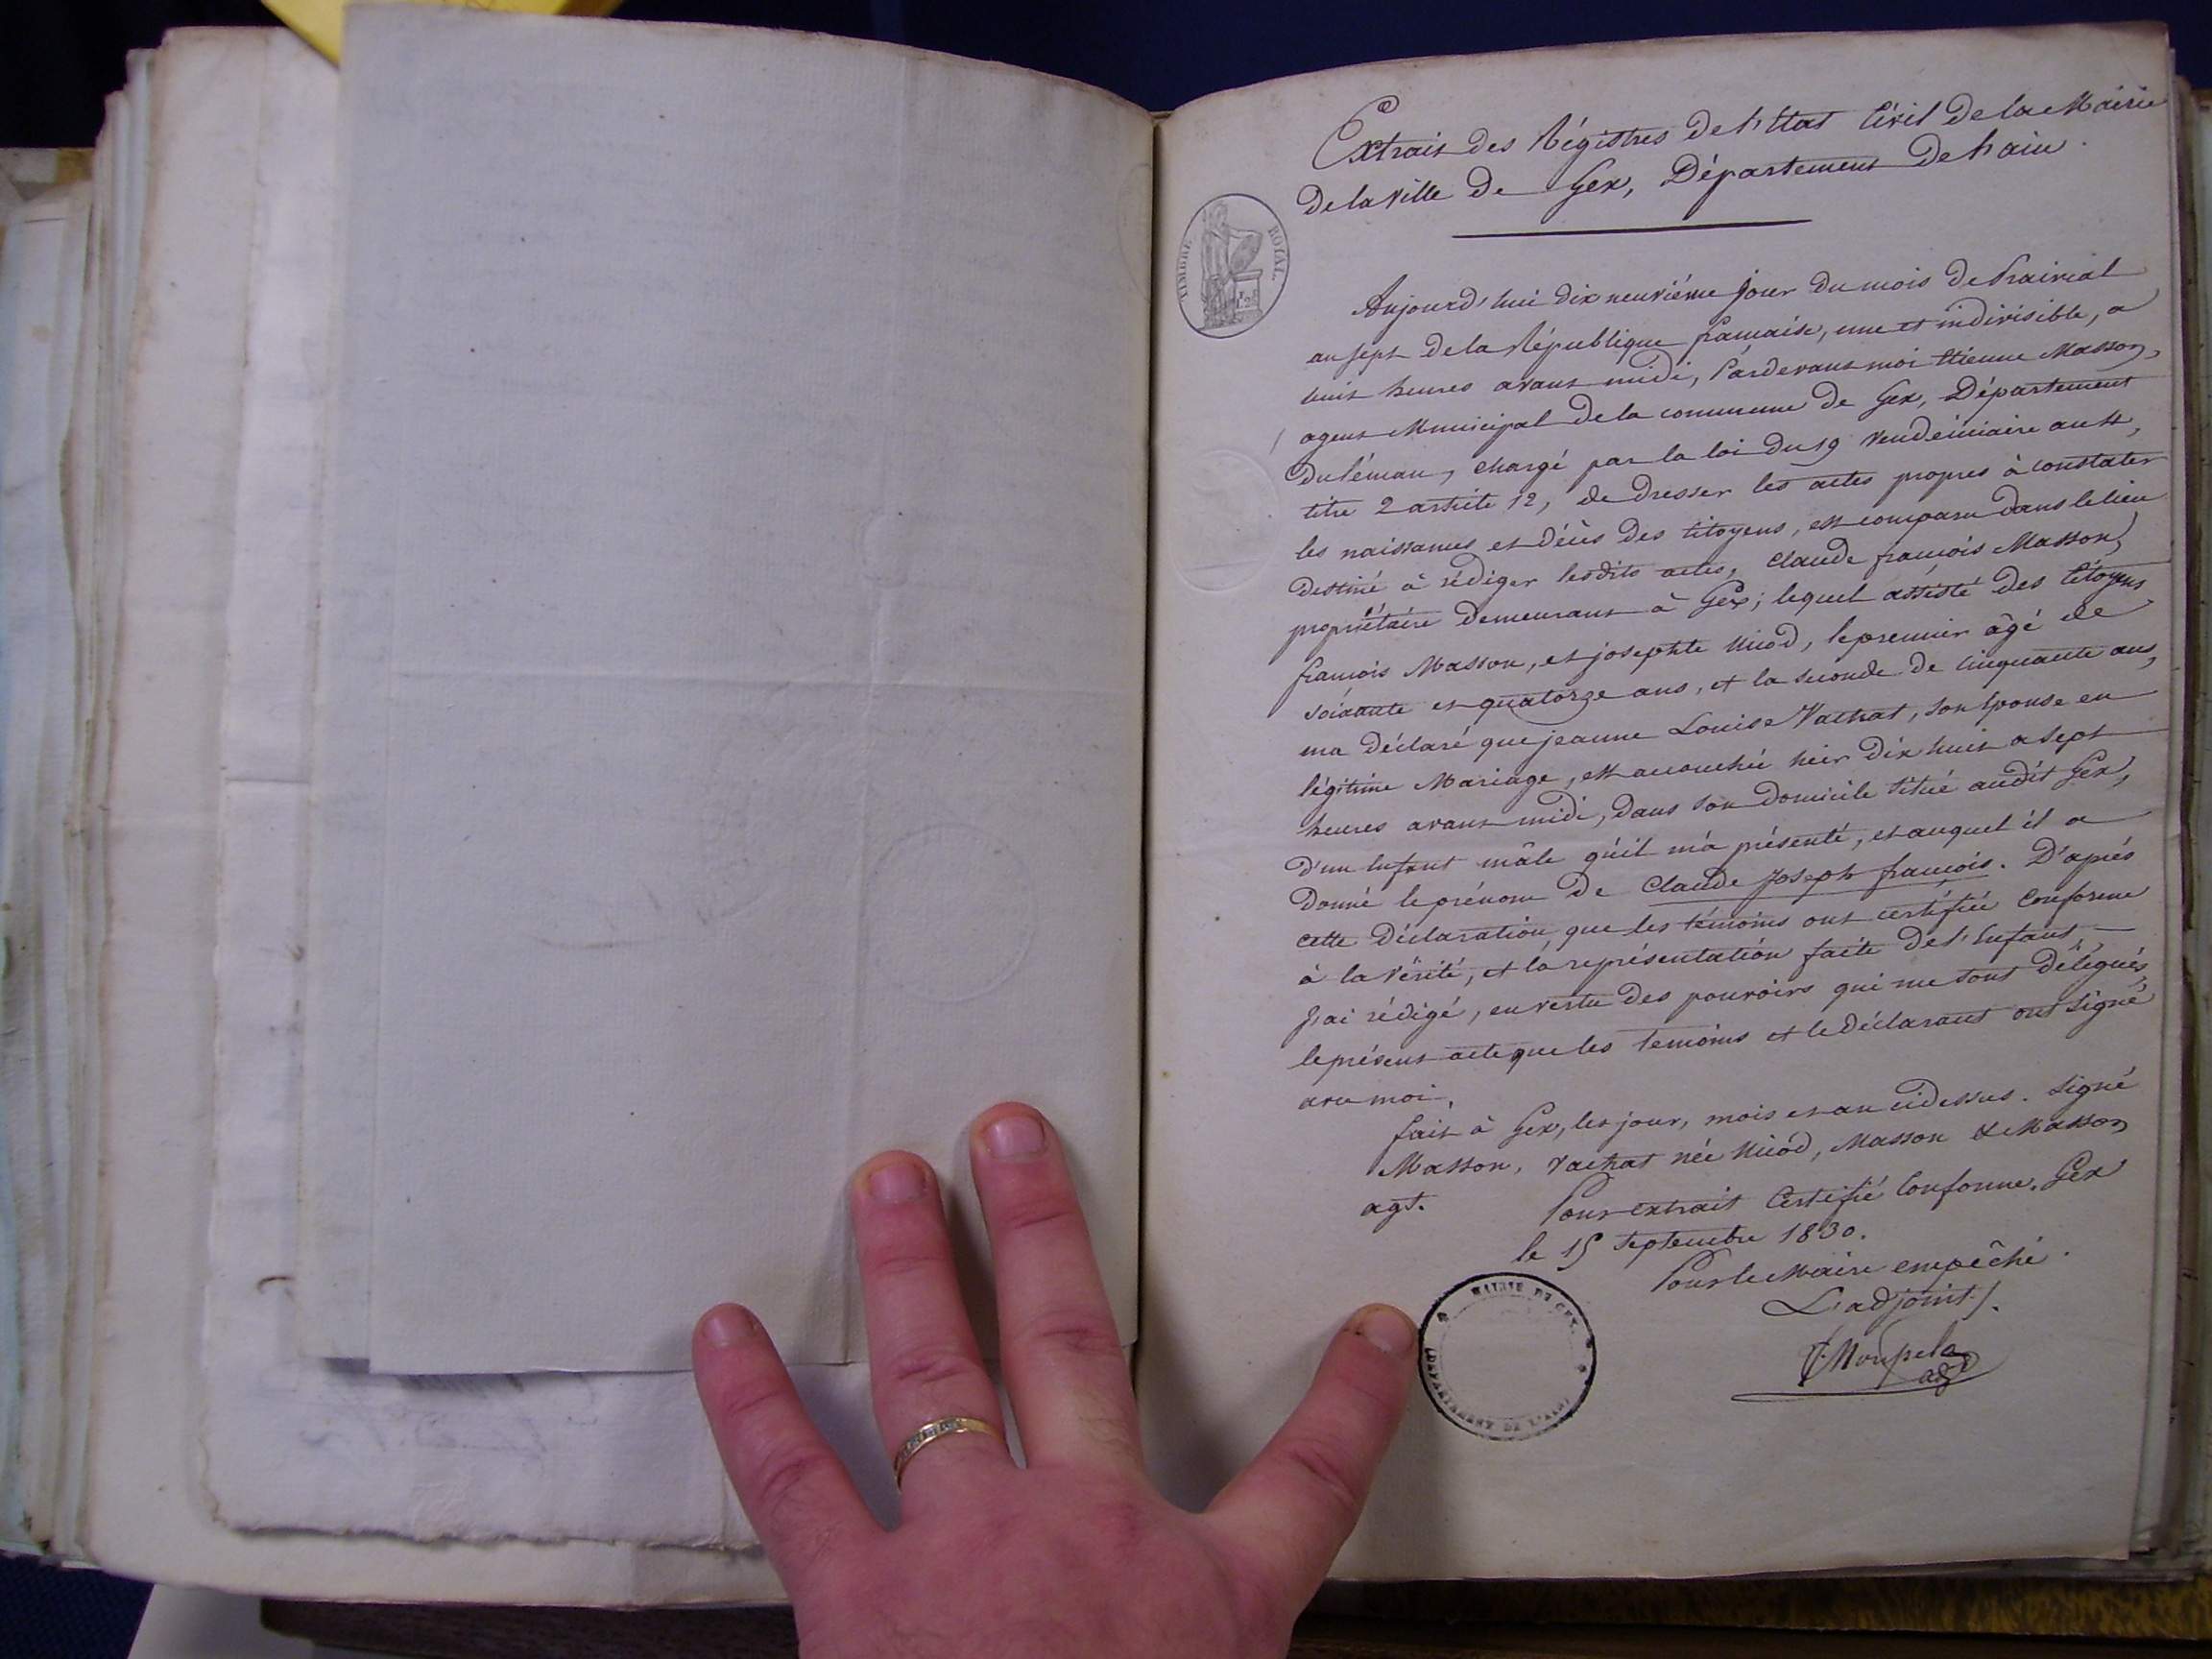 Extrait des Régistres de l'Etat Civil de la Mairie
de la ville de Gex, Département de l'ain.
TIMBRE ROYAL
Aujourd'hui dix neuvième jour du mois de Prairial
an sept de la République française, une et indivisible, a
huit heures avant midi, Pardevant moi Etienne Masson,
agent Municipal de la commune de Gex, Département
du Léman, chargé par la loi du 19 vendémiaire an 4,
titre 2 article 12, de dresser les actes propres à constater
les naissances et décès des Citoyens, est comparu dans le lieu
destiné à rédiger lesdits actes, Claude françois Masson,
propriétaire demeurant à Gex; lequel assisté des Citoyens
françois Masson, et josephte Nicod, le premier âgé de
soixante et quatorze ans, et la seconde de cinquante ans,
ma déclaré que jeanne Louise Vachat, son Epouse en
légitime Mariage, est accouchée hier dix huit a sept
heures avant midi, dans son domicile situé audit Gex,
d'un Enfant mâle qu'il m'a présenté, et auquel il a
donné le prénom de Claude Joseph françois. D'après
cette déclaration, que les témoins ont certifiée Conforme
à la vérité, et la représentation faite de l'Enfant,
j'ai rédigé, en vertu des pouvoirs qui me sont délégués,
le présent acte que les temoins et le déclarant ont signé
avec moi.
fait à Gex, les jour, mois et an cidessus. Signé
Masson, Vachat née Nicod, Masson & Masson
agt.
Pour extrait Certifié Conforme. Gex
le 15 Septembre 1830.
Pour le Maire empêché.
L'adjoint.
adj
MAIRIE DE GEX.
DÉPARTEMENT DE L'AIN